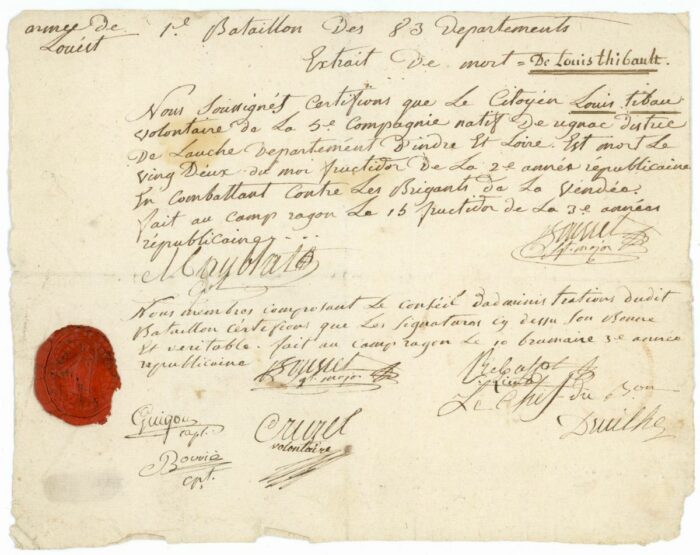 armée de
Louest
1er Bataillon Des 83 Departements
Extrait De mort = De Louis thibault.
Nous Soussignés Certifions que Le Citoyen Louis tibau
volontaire de La 5e Compagnie natif De ugnac distric
De Lauche Departement D'indre Et Loire. Est mort Le
ving Deux du moi fructidor De La 2e année républicaine
En Combattant Contre Les Brigants de La Vendée.
fait au camp ragon Le 15 fructidor de La 3e années
républicaine
St. major
Nous membres composant Le Conseil Dadministrations dudit
Bataillon Certifions que Les Signatures cy dessu Son Bonne
Et veritable. fait au camp ragon Le 10 brumaire 3e année
républicaine
St. major
Le Chef du Bon
Guigou
capt.
Cruzel
volontaire
cpt.